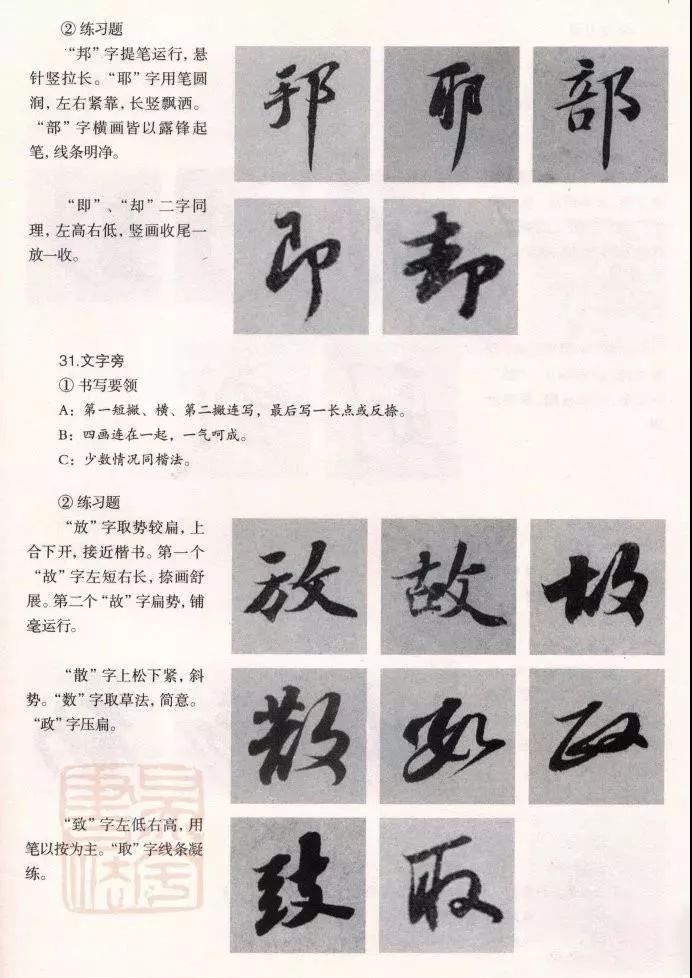 ② 练习题
“邦”字提笔运行，悬
针竖拉长。“耶”字用笔圆
润，左右紧靠，长竖飘洒。
“部”字横画皆以露锋起
笔，线条明净。
邦 耶 部
“即”、“却”二字同
理，左高右低，竖画收尾一
放一收。
即 却
31.文字旁
① 书写要领
A：第一短撇、横、第二撇连写，最后写一长点或反捺。
B：四画连在一起，一气呵成。
C：少数情况同楷法。
② 练习题
“放”字取势较扁，上
合下开，接近楷书。第一个
“故”字左短右长，捺画舒
展。第二个“故”字扁势，铺
毫运行。
放 故 故
“散”字上松下紧，斜
势。“数”字取草法，简意。
“政”字压扁。
散 数 政
“致”字左低右高，用
笔以按为主。“取”字线条凝
练。
致 取